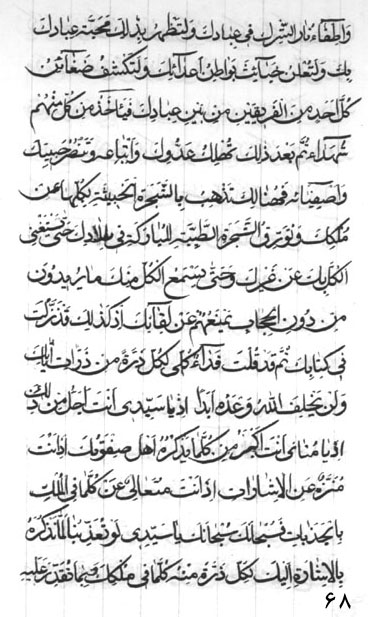 واطفاء نار الشرك في عبادك ولتظهر بذلك محبتة عبادك
بك ولتعلن خبائث بواطن اعدائك ولتكشف ضغائن
كل احد من الفريقين من بين عبادك فياخذ من كل منهم
شهداء ثم بعد ذلك تهلك عدوك واتباعه وتنصر حبيبك
واصفيائه فهنالك تذهب بالشجرة الخبيثة بكلها عن
ملكك وتورق الشجرة الطيبة المباركة في بلادك حتى يستغنى
الكل بك عن غيرك وحتى يسمع الكل منك ما يريدون
من دون الحجاب يمنعهم عن لقائك اذ كذلك قد نزلت
في كتابك ثم قد قلت فداء كلى لكل ذرة من ذرات اياتك
ولن يخلف الله وعده ابدا اذ يا سيدى انت اجل من ذلك
اذ يا منائى انت اكبر من كلما يذكره اهل صفوتك اذ انت
منزه عن الاشارات اذ انت متعالى عن كلما في الملك
بانجذبات فسبحانك سبحانك يا سيدى لو تعذبنا لما تذكره
بالاشارة اليك لكل ذرة منه كلما في ملكك وبما تقدر عليه
۶۸